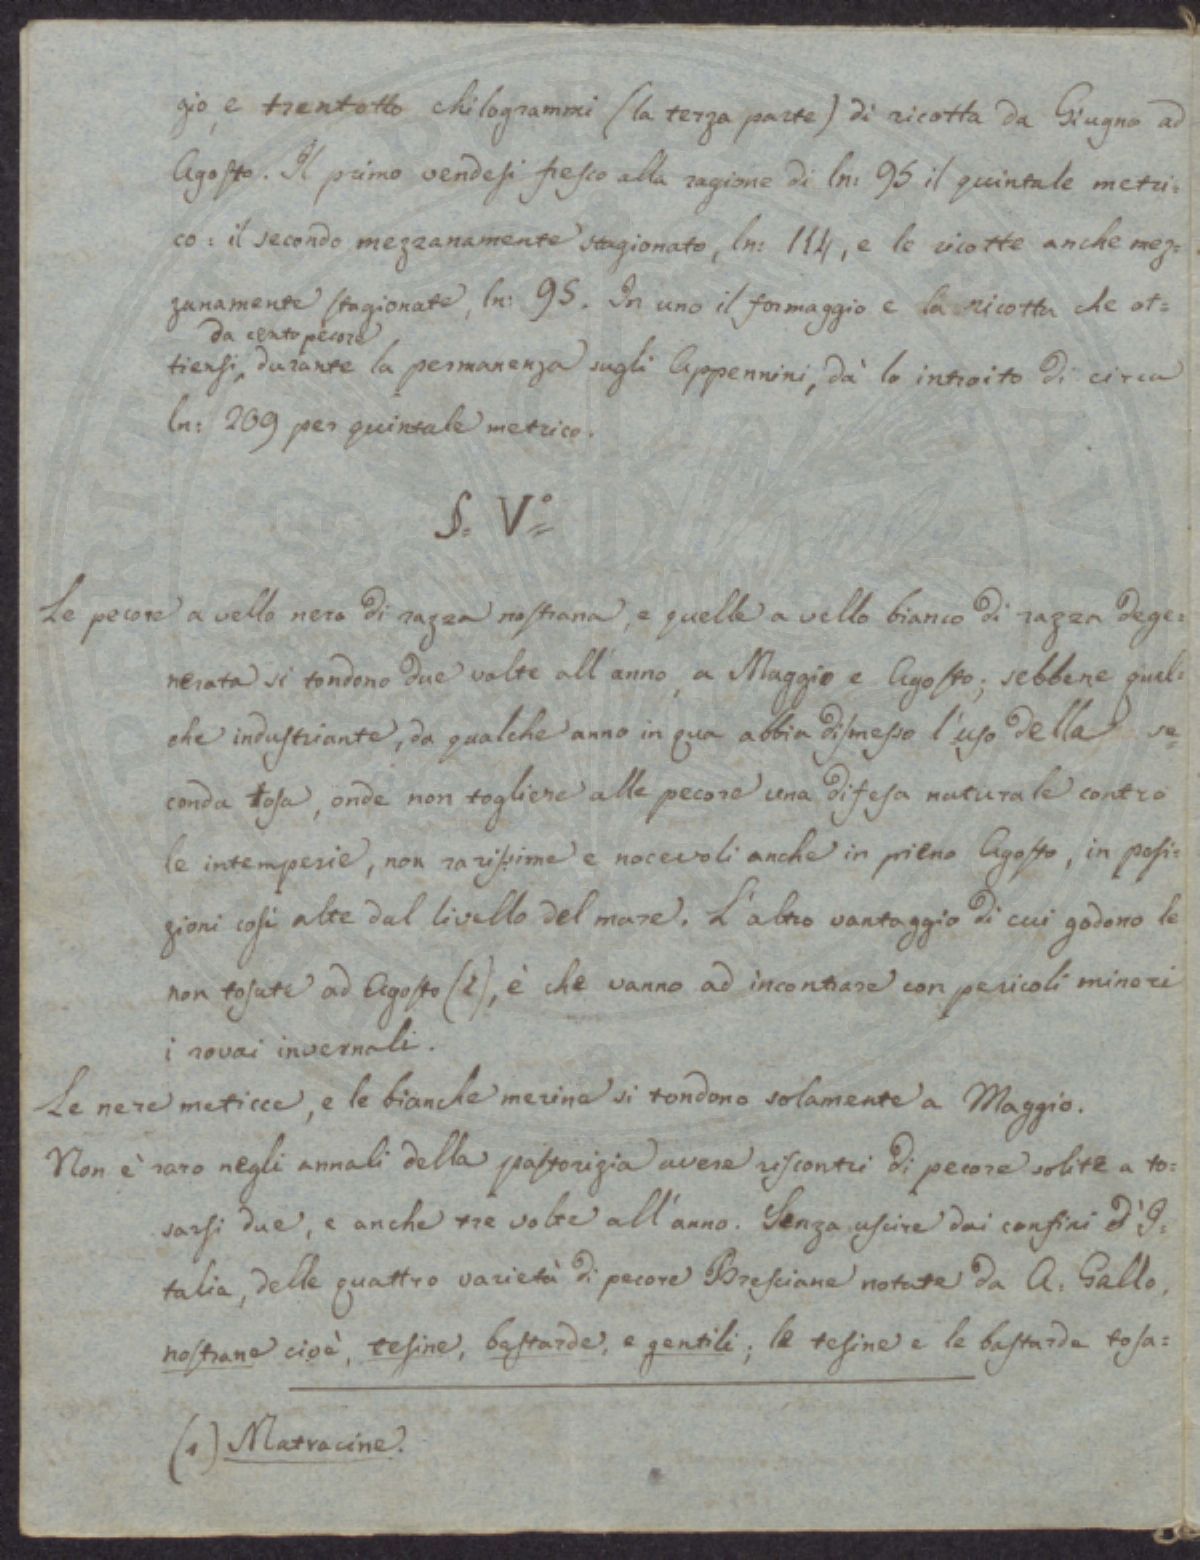 gio, e trentotto chilogrammi (la terza parte) di ricotta da Giugno ad
Agosto. Il primo vendesi fresco alla ragione di ln: 95 il quintale metri=
co: il secondo mezzanamente stagionato, ln: 114, e le ricotte anche mez=
zanamente stagionate, ln: 95. In uno il formaggio e la ricotta che ot=
da cento pecore
tiensi, durante la permanenza sugli Appennini, dà lo introito di circa
ln: 209 per quintale metrico.
§. V°
Le pecore a vello nero di razza nostrana, e quelle a vello bianco di razza dege=
nerata si tondono due volte all'anno, a Maggio e Agosto; sebbene qual=
che industriante, da qualche anno in qua abbia dismesso l'uso della se=
conda tosa, onde non togliere alle pecore una difesa naturale contro
le intemperie, non rarissime e nocevoli anche in pieno Agosto, in posi=
zioni così alte dal livello del mare. L'altro vantaggio di cui godono le
non tosate ad Agosto (1), è che vanno ad incontrare con pericoli minori
i rovai invernali.
Le nere meticce, e le bianche merine si tondono solamente a Maggio.
Non è raro negli annali della pastorizia avere riscontri di pecore solite a to=
sarsi due, e anche tre volte all'anno. Senza uscire dai confini d'I=
talia, delle quattro varietà di pecore Bresciane notate da A. Gallo,
nostrane cioè, tesine, bastarde, e gentili; le tesine e le bastarde tosa=
(1) Matracine.